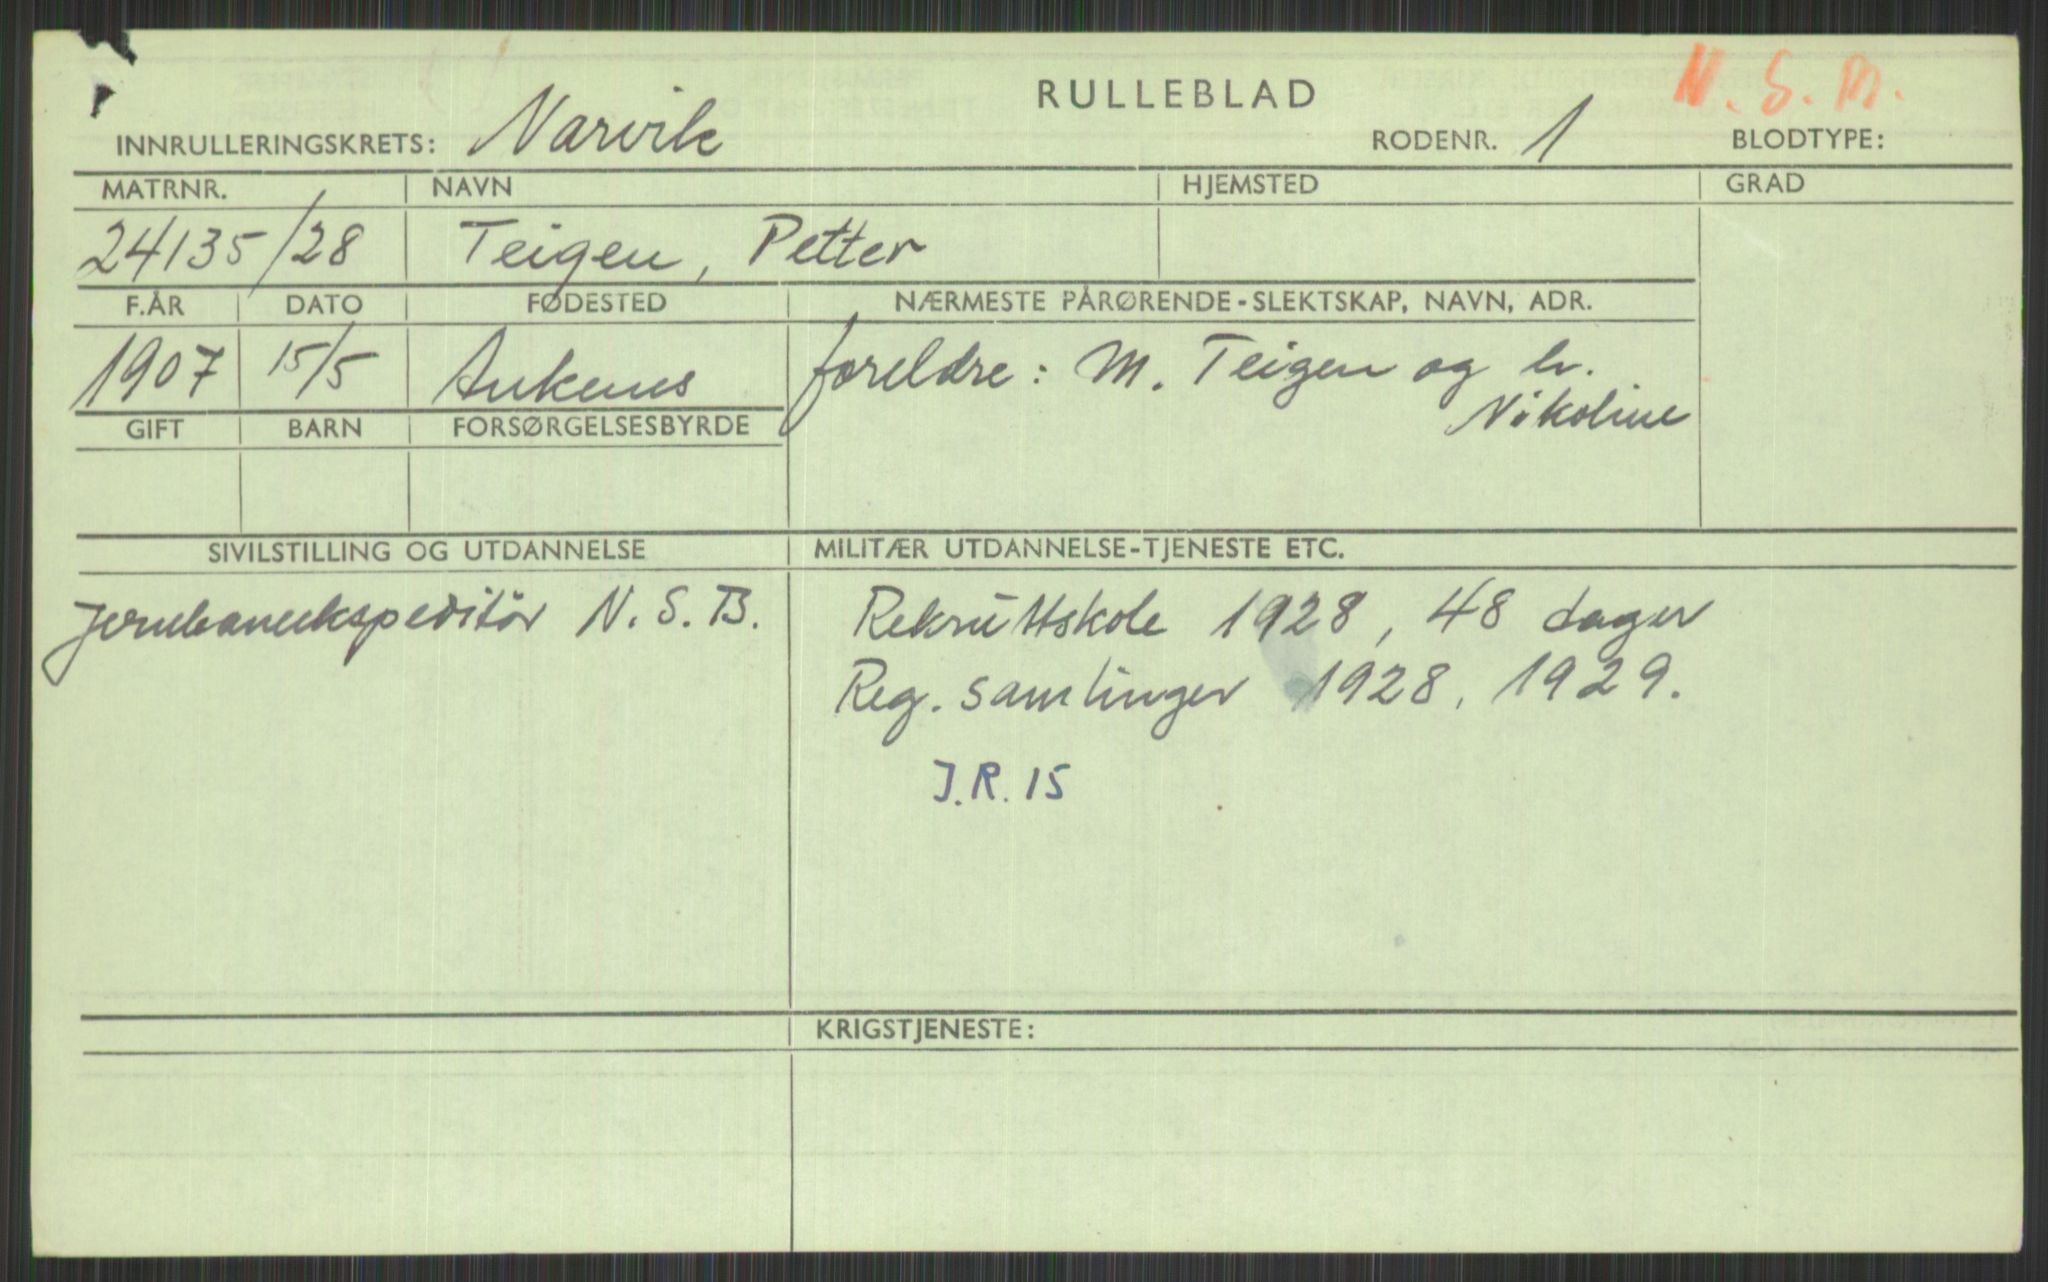 N. S. M.
RULLEBLAD
INNRULLERINGSKRETS: Narvik RODENR. 1 BLODTYPE:
MATRNR. NAVN HJEMSTED GRAD
24135/28 Teigen, Petter
F.ÅR DATO FØDESTED NÆRMESTE PÅRØRENDE-SLEKTSKAP, NAVN, ADR.
1907 15/5 Ankenes foreldre: M. Teigen og h.
Nikoline
GIFT BARN FORSØRGELSESBYRDE
SIVILSTILLING OG UTDANNELSE MILITÆR UTDANNELSE-TJENESTE ETC.
Jernbaneekspeditör N.S.B. Rekruttskole 1928, 48 dager
Reg. samlinger 1928, 1929.
J.R. 15
KRIGSTJENESTE: